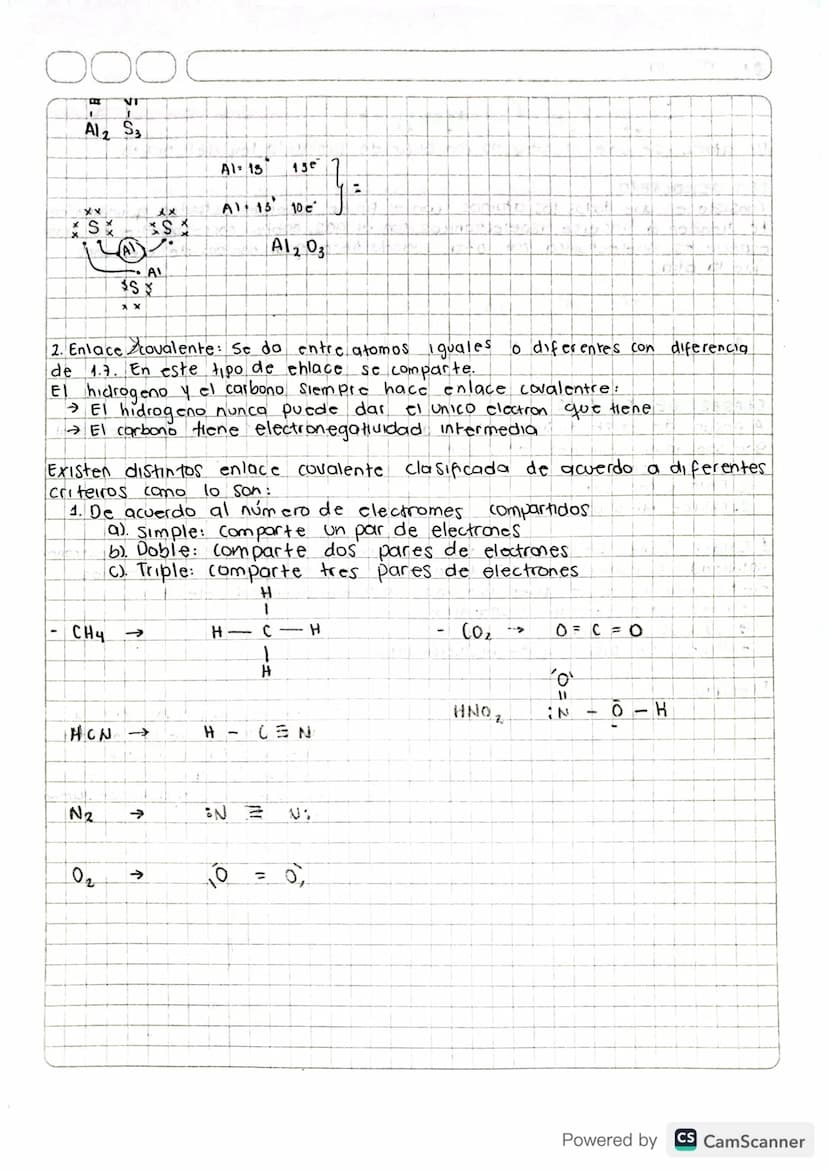 III VI
Al2 S3
Al= 13+ 13e-
=
Al= 13+ 10e-
S S
Al2 O3
Al
Al
S
2. Enlace covalente: Se da entre atomos iguales o diferentes con diferencia
de 1.7. En este tipo de enlace se comparte.
El hidrogeno y el carbono siempre hace enlace covalentre:
→ El hidrogeno nunca puede dar el unico electron que tiene
→ El carbono tiene electronegatividad intermedia
Existen distintos enlace covalente clasificada de acuerdo a diferentes
criteiros como lo son:
1. De acuerdo al número de electromes compartidos
a). Simple: Comparte un par de electrones
b). Doble: comparte dos pares de electrones
c). Triple: comparte tres pares de electrones
H
|
- CH4 → H — C — H - CO2 → O = C = O
|
H
O
||
HNO2 :N - O - H
HCN → H - C ≡ N
N2 → :N ≡ N:
O2 → O = O
Powered by CS CamScanner